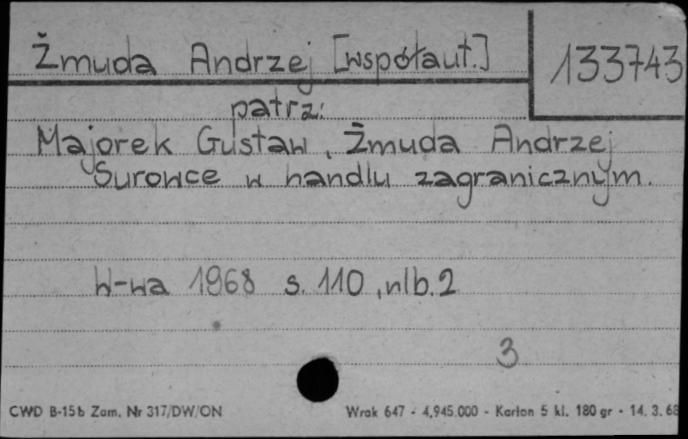 Żmuda Andrzej [współaut.]
133743
patrz:
Majorek Gustaw, Żmuda Andrzej
Surowce w handlu zagranicznym.
W-wa 1968 s. 110, nlb. 2
3
CWD B-15b Zam. Nr 317/DW/ON
Wrak 647 - 4,945.000 - Karton 5 kl. 180 gr - 14. 3. 68